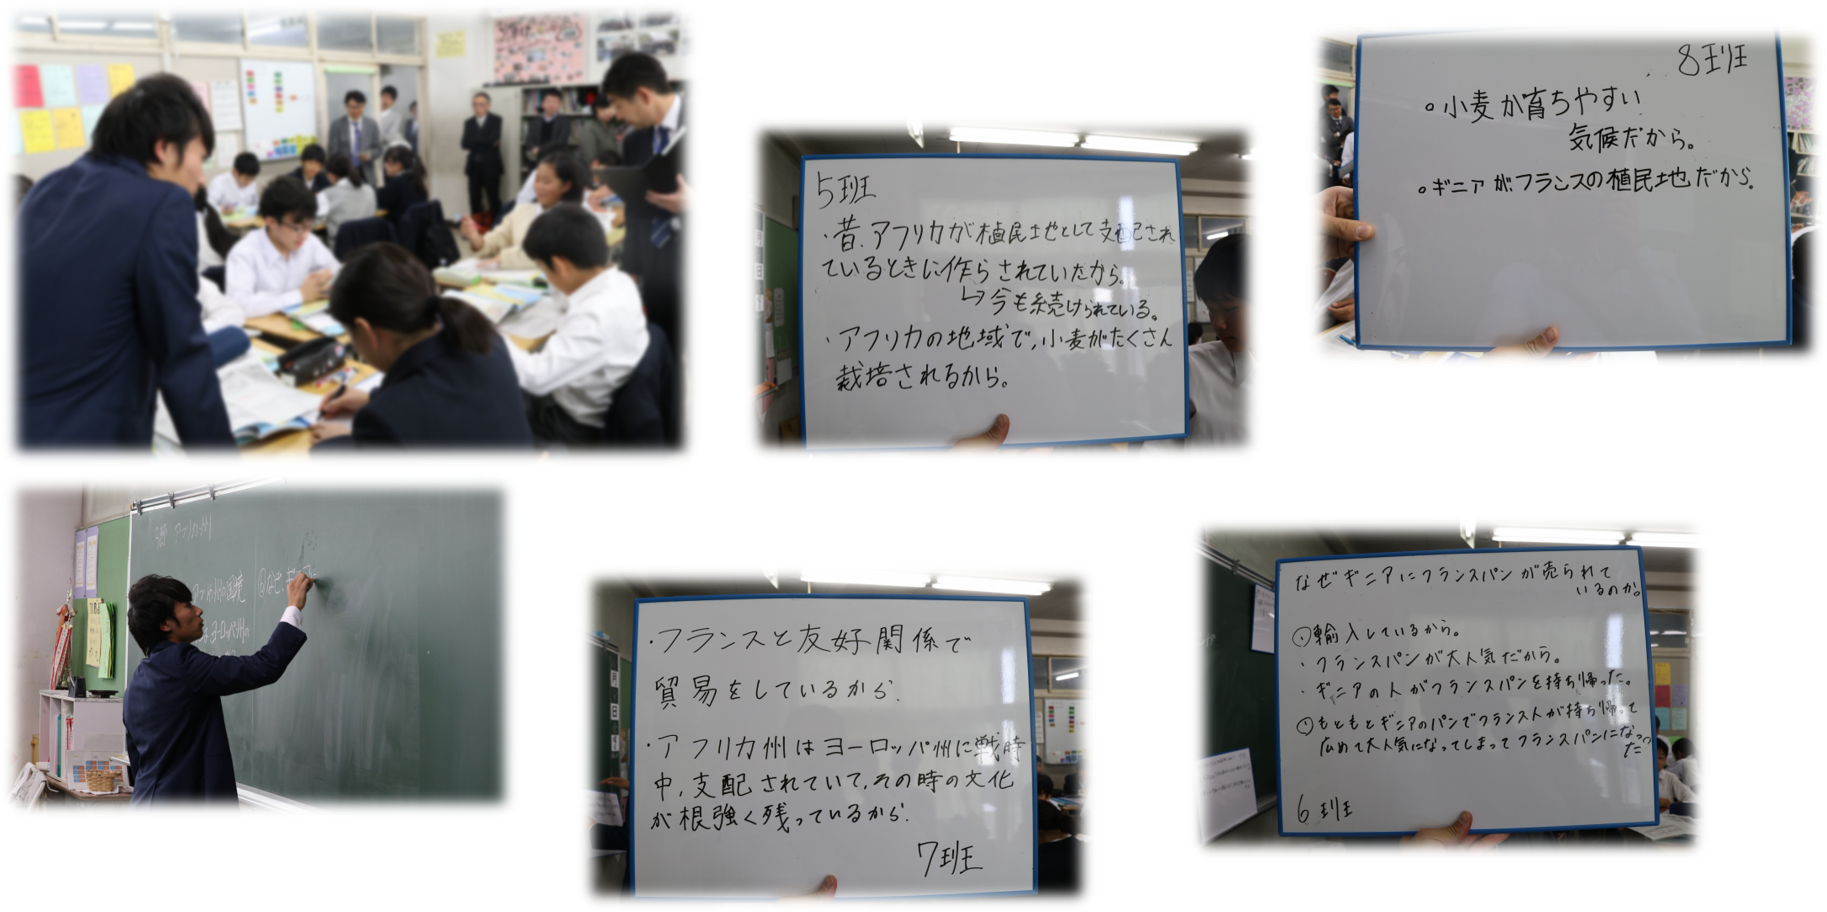 5班
・昔、アフリカが植民地として支配され
ているときに作らされていたから。
↳今も続けられている。
・アフリカの地域で、小麦がたくさん
栽培されるから。
8班
○小麦が育ちやすい
気候だから。
○ギニアがフランスの植民地だから。
アフリカ州
国境
なぜ、ギニアに
ヨーロッパ州の
・フランスと友好関係で
貿易をしているから.
・アフリカ州はヨーロッパ州に戦時
中、支配されていて、その時の文化
が根強く残っているから.
7班
なぜギニアにフランスパンが売られて
いるのか。
輸入しているから。
・フランスパンが大人気だから。
・ギニアの人がフランスパンを持ち帰った。
もともとギニアのパンでフランス人が持ち帰って
広めて大人気になってしまってフランスパンになっ
た
6班